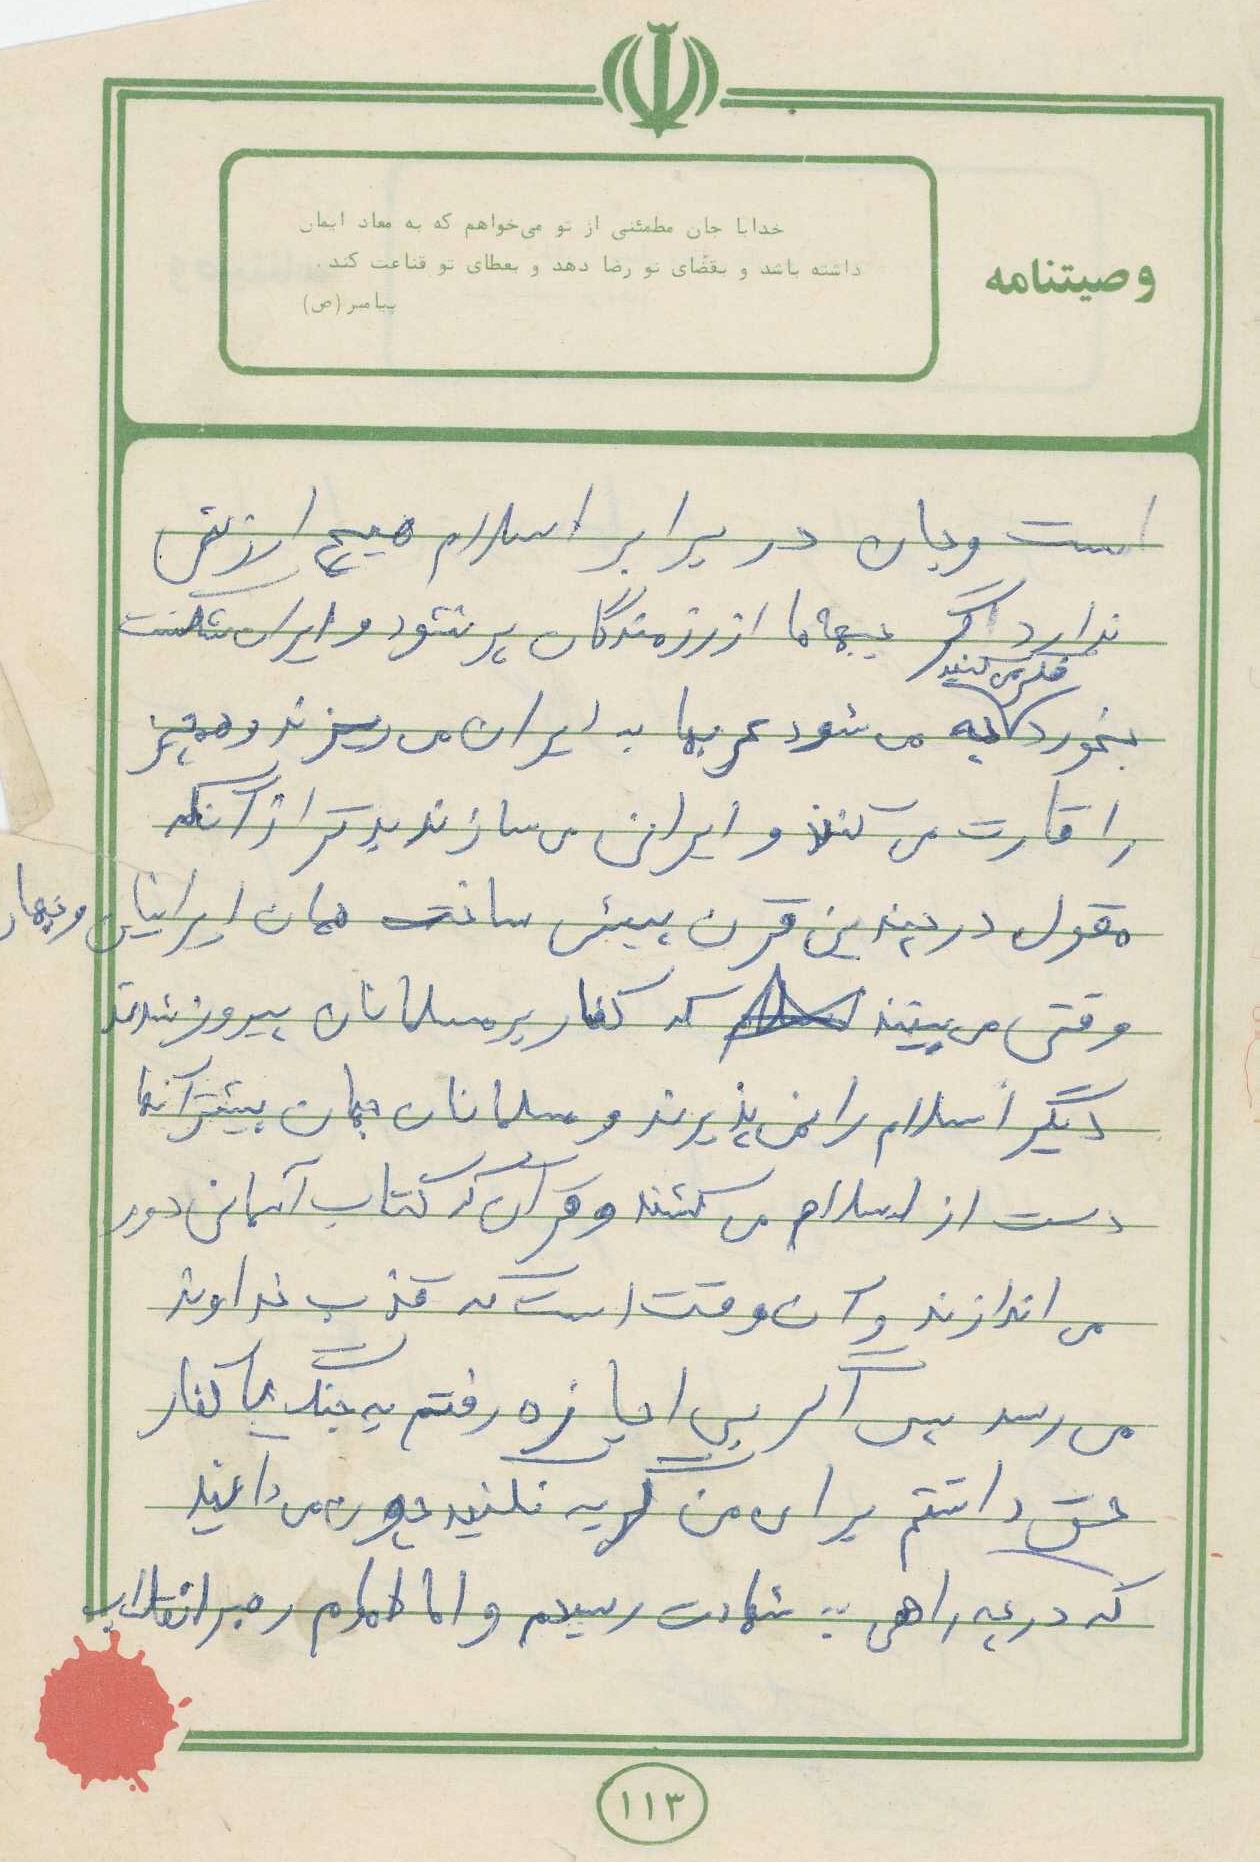 خدایا جان مطمئنی از تو می‌خواهم که به معاد ایمان
داشته باشد و بقضای تو رضا دهد و بعطای تو قناعت کند.
پیامبر (ص)
وصیتنامه
است وجان در برابر اسلام هیچ ارزش
ندارد اگر جبهه ما از رزمندگان پر نشود و ایران شکست
فکر می کنید
بخورد چه می شود عربها به ایران می ریزند و همه چیز
را قارت می کنند و ایرانی می سازند بدتر از آنکه
مقول در چندین قرن پیش ساخت همان ایرانیان و جهان
وقتی می بینند که کفار بر مسلمانان پیروز شدند
دیگر اسلام را نمی پذیرند و مسلمانان جهان بیشتر آنها
دست از اسلام می کشند و قرآن که کتاب آسمانی دور
می اندازند و آن وقت است که قذب خداوند
می رسد پس اگر بی اجازه رفتم به جنگ با کفار
حق داشتم برای من گریه نکنید چون می دانید
که در چه راهی به شهادت رسیدم و اما امام رهبر انقلاب
۱۱۳